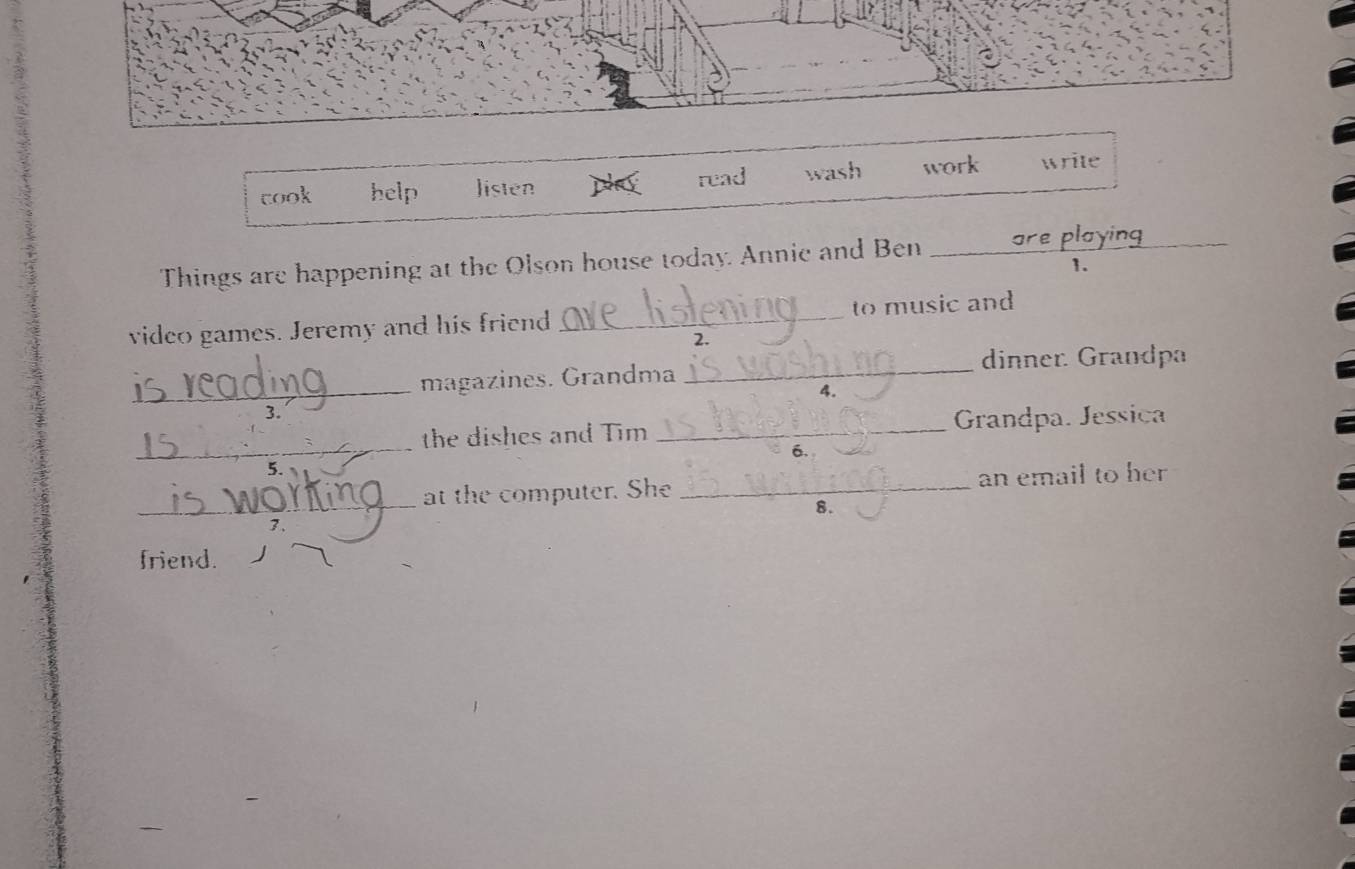 cook help listen play read wash work write
Things are happening at the Olson house today. Annie and Ben are playing
1.
video games. Jeremy and his friend are listening to music and
2.
is reading magazines. Grandma is washing dinner. Grandpa
3. 4.
is the dishes and Tim is helping Grandpa. Jessica
5. 6.
is working at the computer. She is writing an email to her
7. 8.
friend.